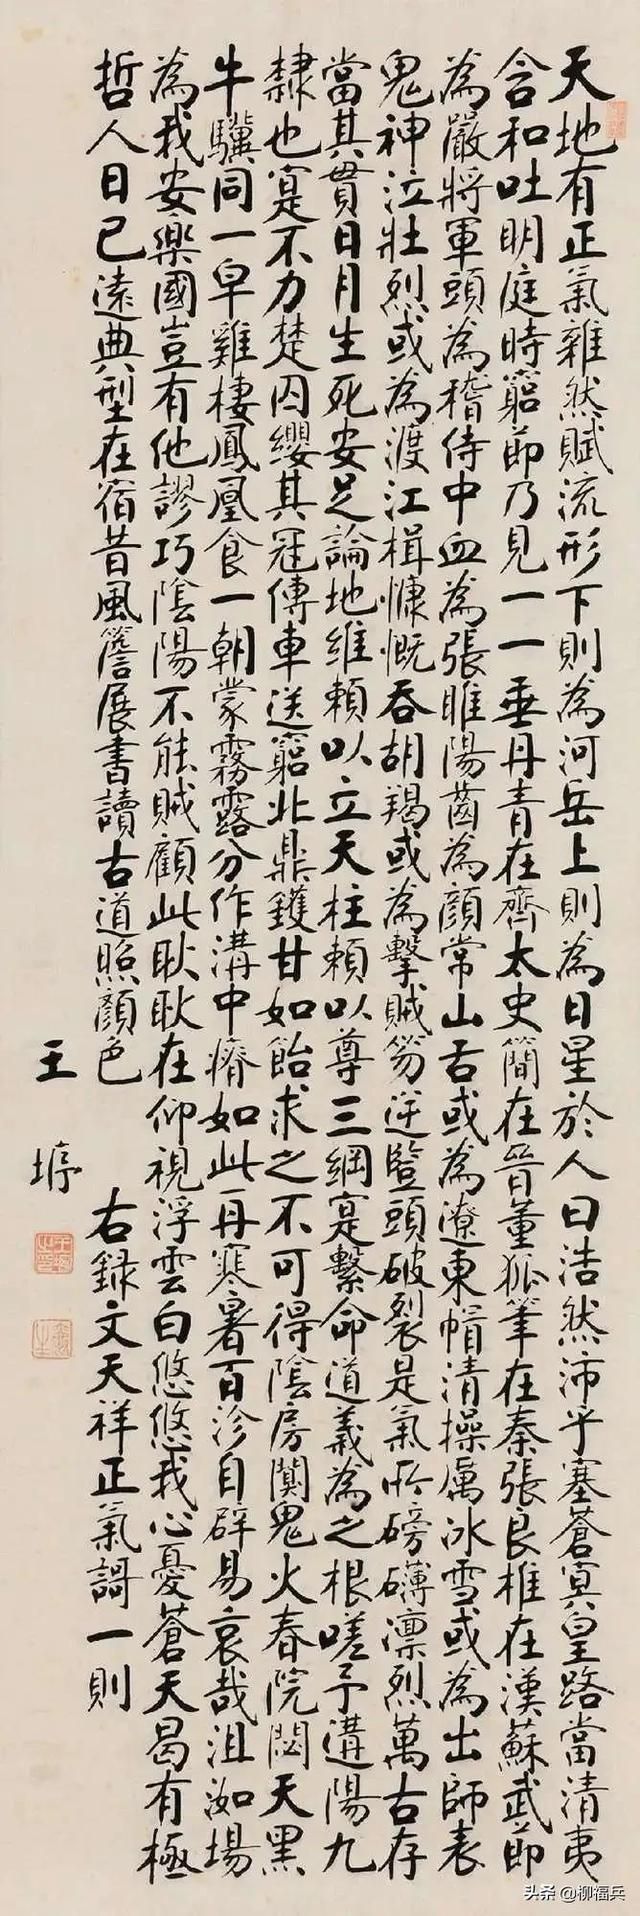 天地有正氣雜然賦流形下則為河岳上則為日星於人曰浩然沛乎塞蒼冥皇路當清夷
含和吐明庭時窮節乃見一一垂丹青在齊太史簡在晉董狐筆在秦張良椎在漢蘇武節
為嚴將軍頭為稽侍中血為張睢陽齒為顏常山舌或為遼東帽清操厲冰雪或為出師表
鬼神泣壯烈或為渡江楫慷慨吞胡羯或為擊賊笏逆豎頭破裂是氣所磅礴凜烈萬古存
當其貫日月生死安足論地維賴以立天柱賴以尊三綱寔繫命道義為之根嗟予遘陽九
隸也寔不力楚囚纓其冠傳車送窮北鼎鑊甘如飴求之不可得陰房闃鬼火春院閟天黑
牛驥同一皁雞棲鳳凰食一朝蒙霧露分作溝中瘠如此再寒暑百沴自辟易哀哉沮洳場
為我安樂國豈有他謬巧陰陽不能賊顧此耿耿在仰視浮雲白悠悠我心憂蒼天曷有極
哲人日已遠典型在宿昔風簷展書讀古道照顏色 右錄文天祥正氣謌一則
王垿
头条 @柳福兵